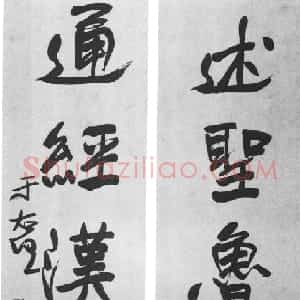 述聖魯
通經漢
于右任
Shufaziliao.com